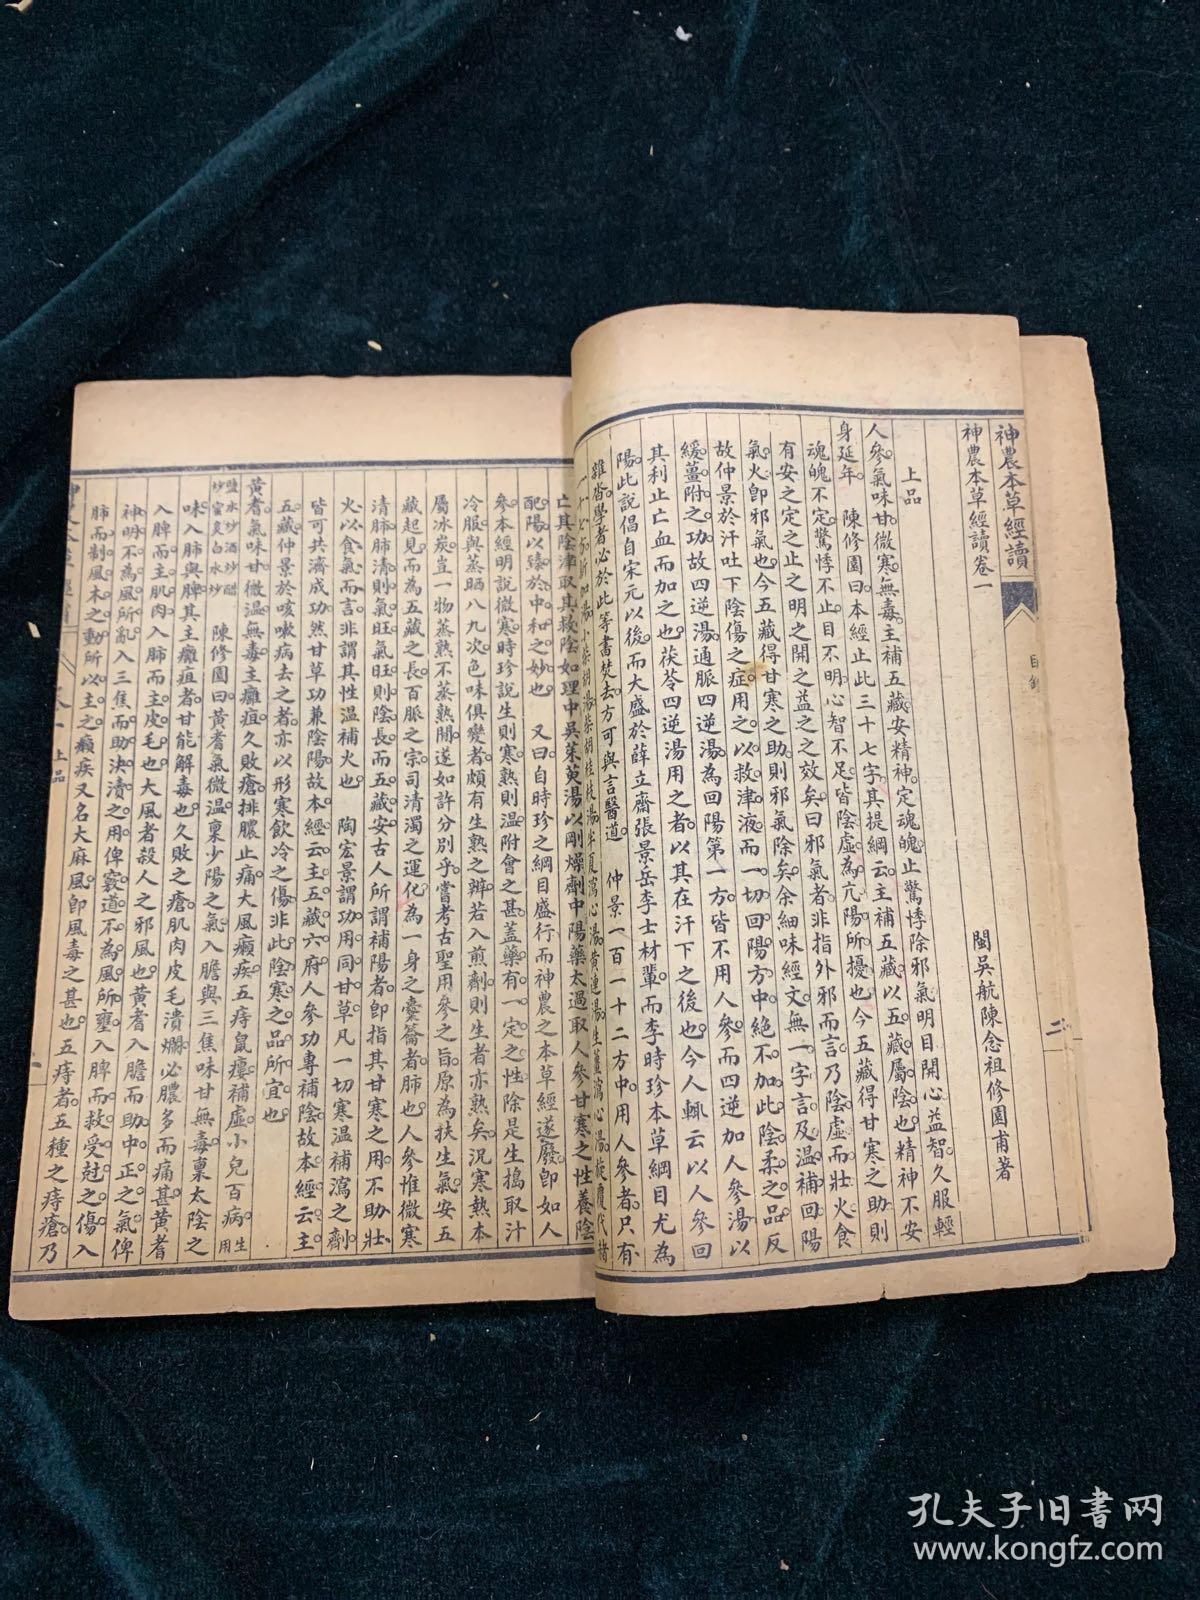 神農本草經讀
神農本草經讀卷一
閩吳航陳念祖修園甫著
上品
人參氣味甘微寒無毒主補五藏安精神定魂魄止驚悸除邪氣明目開心益智久服輕
身延年 陳修園曰本經止此三十七字其提綱云主補五藏以五藏屬陰也精神不安
魂魄不定驚悸不止目不明心智不足皆陰虛為亢陽所擾也今五藏得甘寒之助則
有安之定之止之明之開之益之之效矣曰邪氣者非指外邪而言乃陰虛而壯火食
氣火卽邪氣也今五藏得甘寒之助則邪氣除矣余細味經文無一字言及溫補回陽
故仲景於汗吐下陰傷之症用之以救津液而一切回陽方中絕不加此陰柔之品反
緩薑附之功故四逆湯通脈四逆湯為回陽第一方皆不用人參而四逆加人參湯以
其利止亡血而加之也茯苓四逆湯用之者以其在汗下之後也今人輒云以人參回
陽此說倡自宋元以後而大盛於薛立齋張景岳李士材輩而李時珍本草綱目尤為
雜沓學者必於此等書焚去方可與言醫道 仲景一百一十二方中用人參者只有
湯小柴胡湯柴胡桂枝湯半夏瀉心湯黃連湯生薑瀉心湯旋覆代赭
亡其陰津取其救陰如理中吳茱萸湯以剛燥劑中陽藥太過取人參甘寒之性養陰
配陽以臻於中和之妙也 又曰自時珍之綱目盛行而神農之本草經遂廢卽如人
參本經明說微寒時珍說生則寒熟則溫附會之甚蓋藥有一定之性除是生搗取汁
冷服與蒸晒八九次色味俱變者頗有生熟之辨若入煎劑則生者亦熟矣況寒熱本
屬冰炭豈一物蒸熟不蒸熟間遂如許分別乎嘗考古聖用參之旨原為扶生氣安五
藏起見而為五藏之長百脈之宗司清濁之運化為一身之橐籥者肺也人參惟微寒
清肺肺清則氣旺氣旺則陰長而五藏安古人所謂補陽者卽指其甘寒之用不助壯
火以食氣而言非謂其性溫補火也 陶宏景謂功用同甘草凡一切寒溫補瀉之劑
皆可共濟成功然甘草功兼陰陽故本經云主五藏六府人參功專補陰故本經云主
五藏仲景於咳嗽病去之者亦以形寒飲冷之傷非此陰寒之品所宜也
黃耆氣味甘微溫無毒主癰疽久敗瘡排膿止痛大風癩疾五痔鼠瘻補虛小兒百病生用
鹽水炒酒炒醋
炒蜜炙白水炒 陳修園曰黃耆氣微溫稟少陽之氣入膽與三焦味甘無毒稟太陰之
味入肺與脾其主癰疽者甘能解毒也久敗之瘡肌肉皮毛潰爛必膿多而痛甚黃耆
入脾而主肌肉入肺而主皮毛也大風者殺人之邪風也黃耆入膽而助中正之氣俾
神明不為風所亂入三焦而助決瀆之用俾竅道不為風所壅入脾而救受尅之傷入
肺而制風木之動所以主之癩疾又名大麻風卽風毒之甚也五痔者五種之痔瘡乃
上品
二
孔夫子旧书网
www.kongfz.com